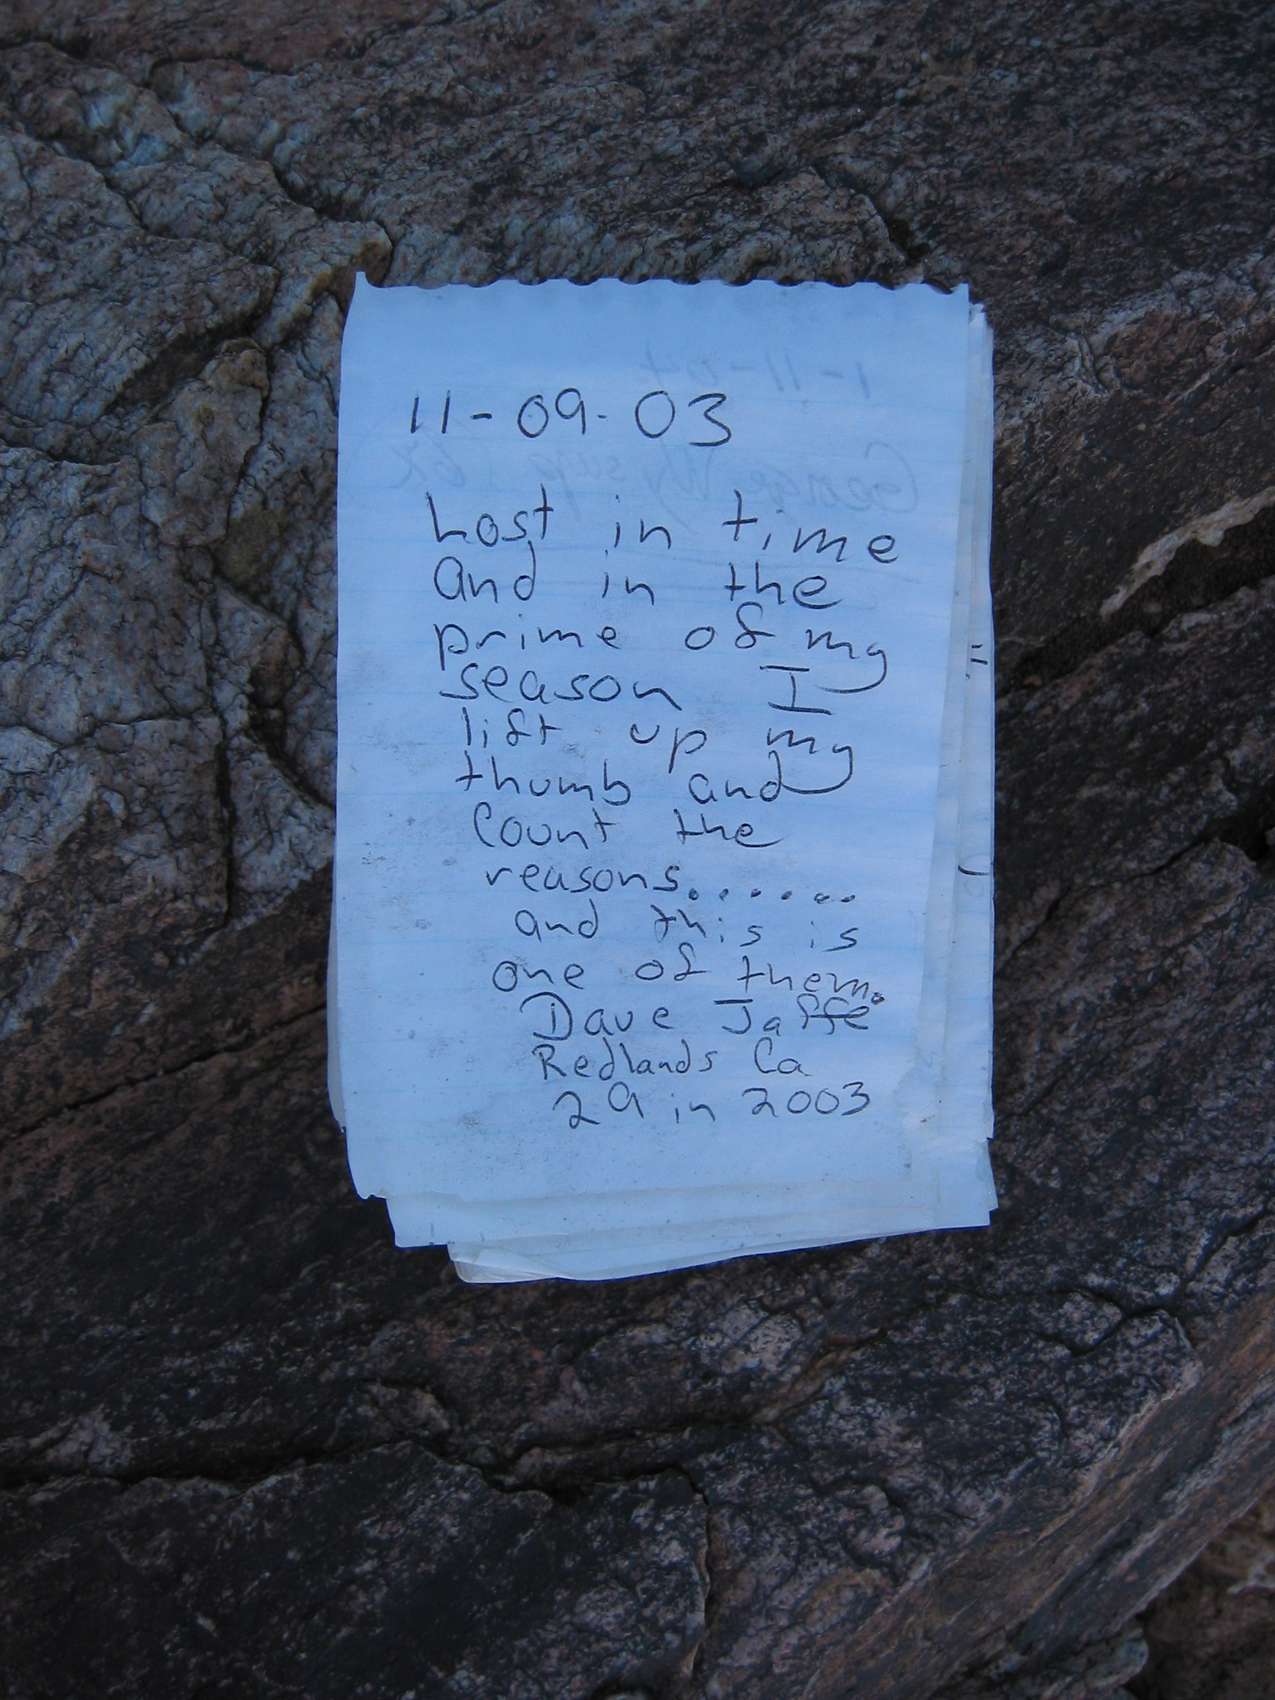 11-09-03
Lost in time
and in the
prime of my
season I
lift up my
thumb and
Count the
reasons.......
and this is
one of them.
Dave Jaffe
Redlands Ca
29 in 2003
1-11-04